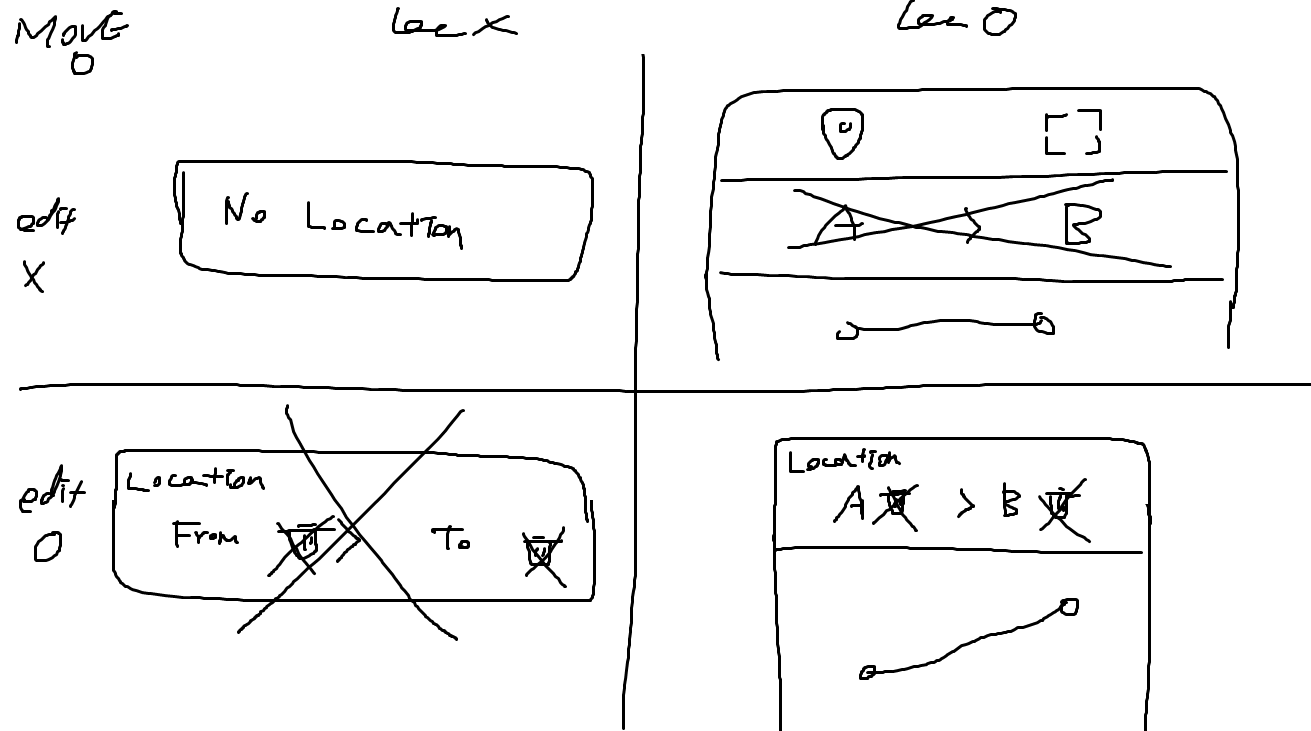 MOVE
O
Loc X
Loc O
edit
X
No Location
A > B
edit
O
Location
From > To
Location
A > B